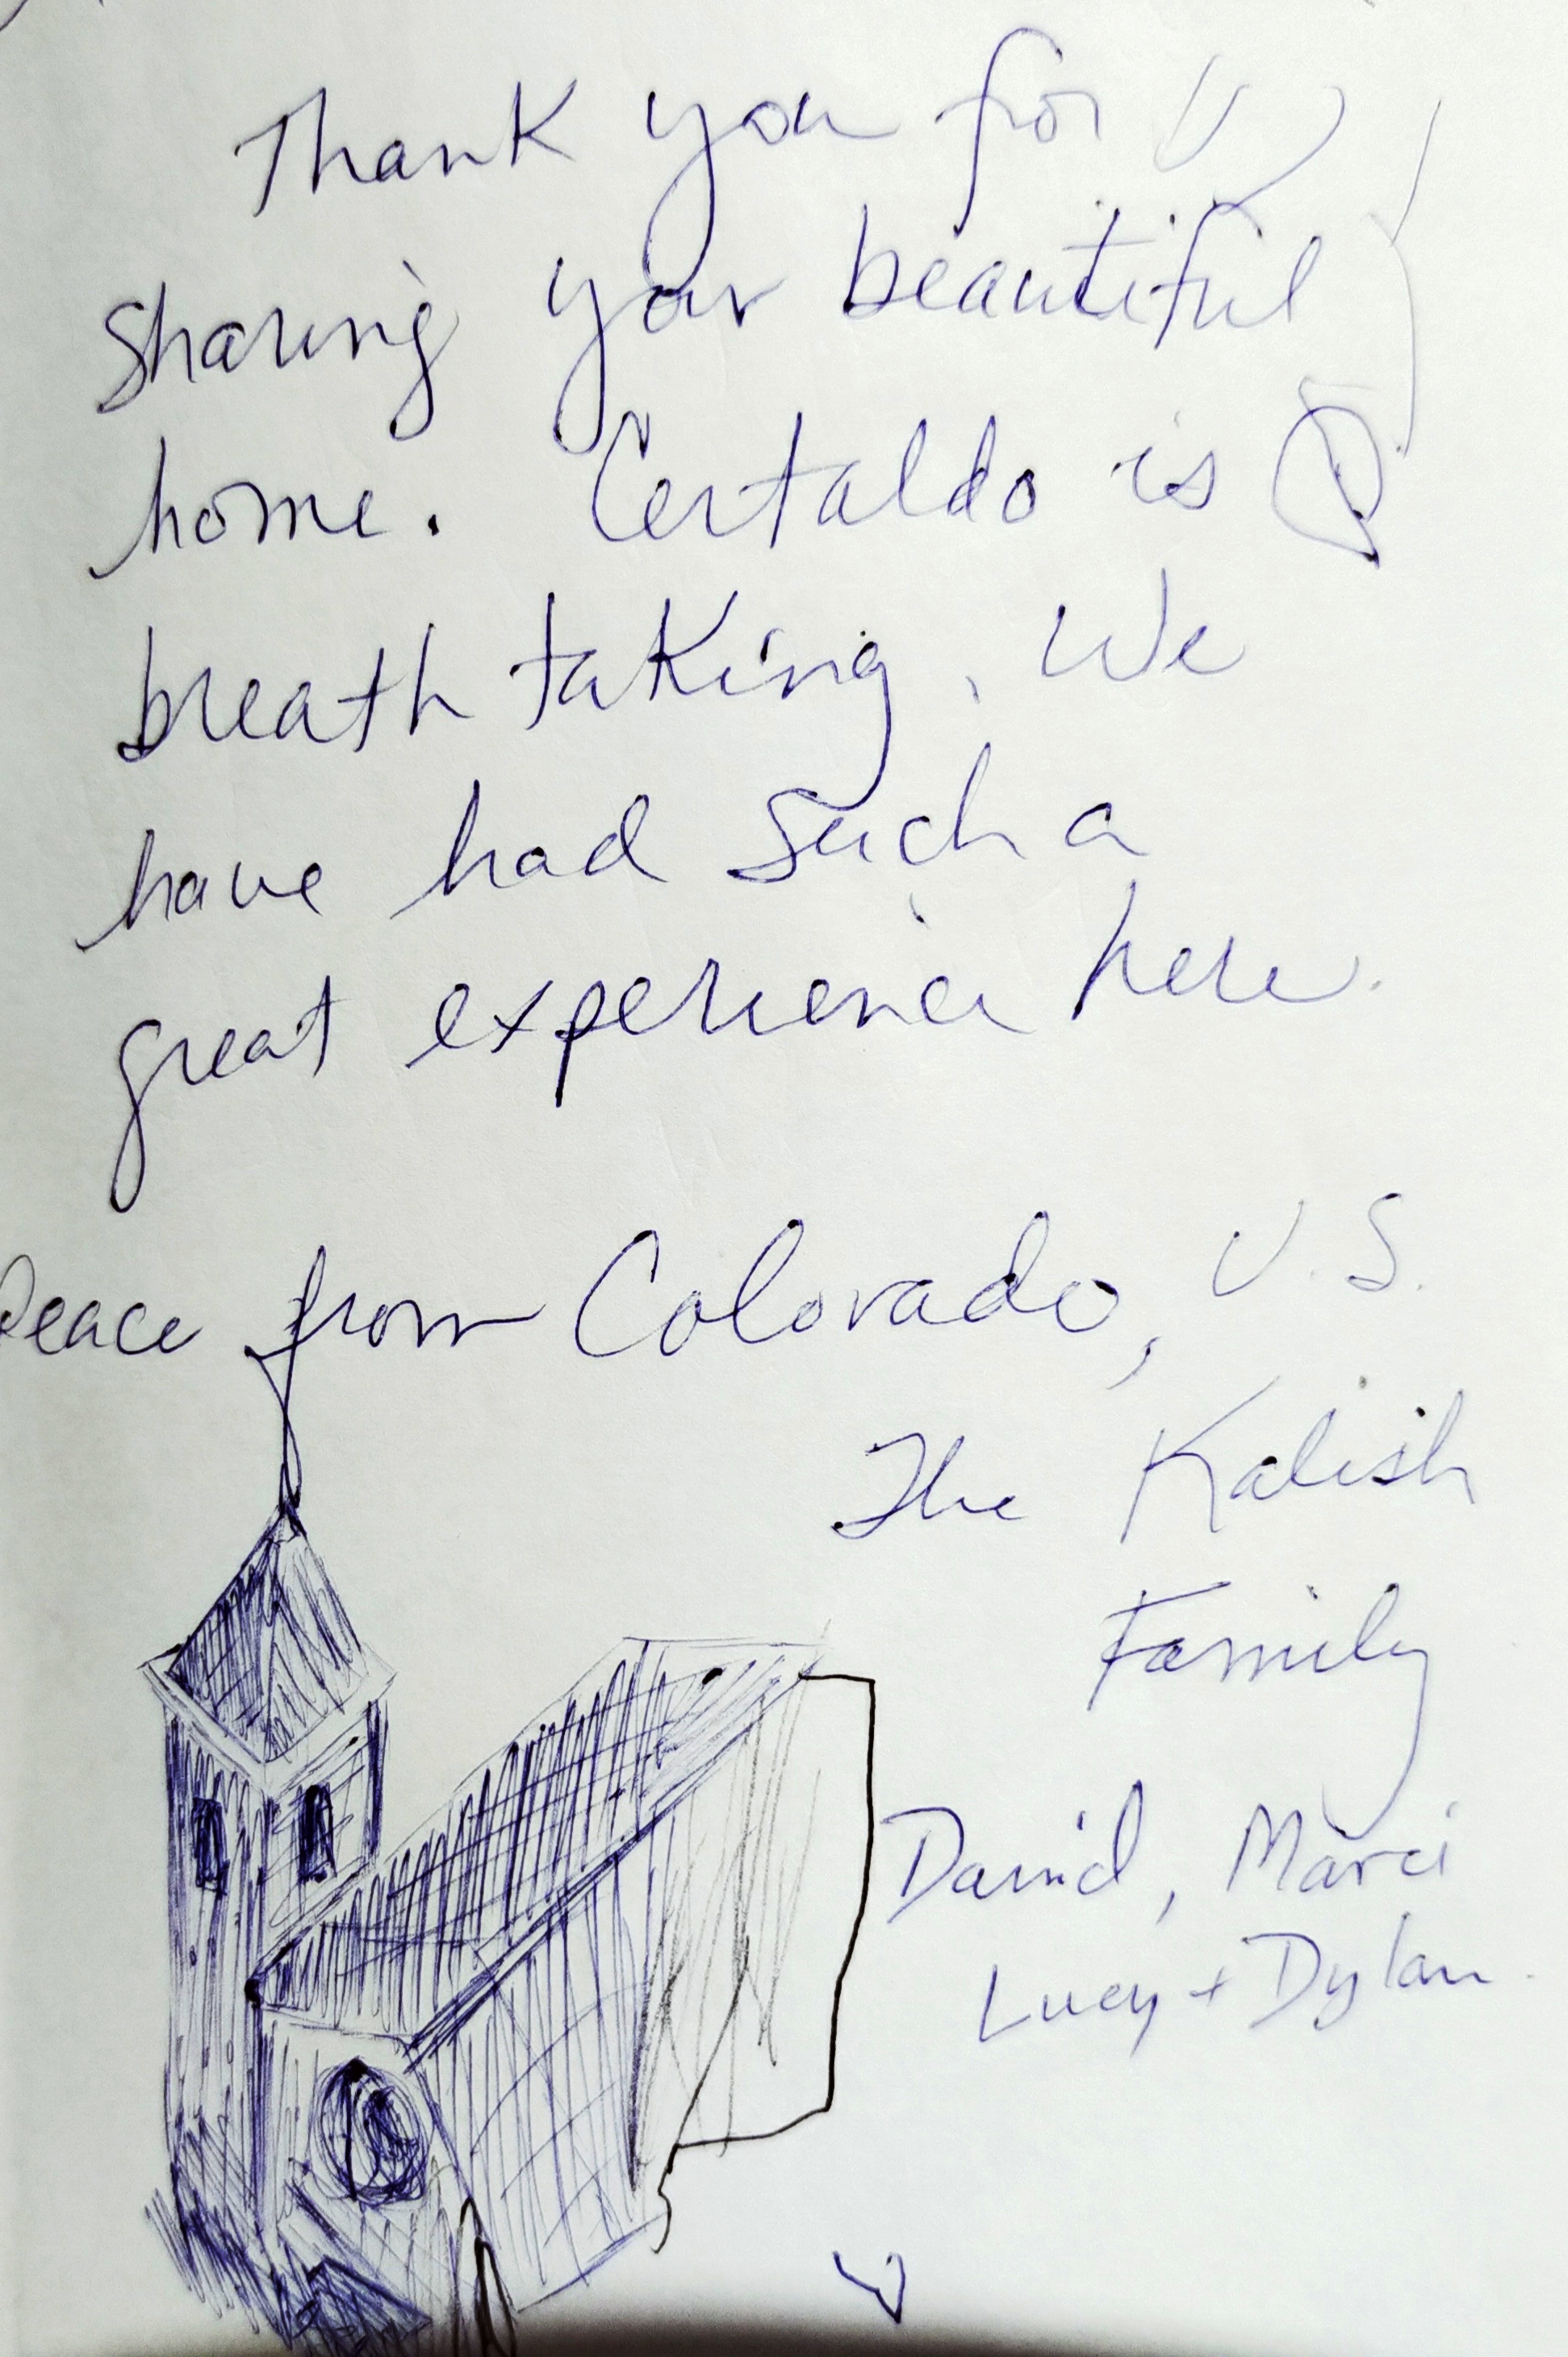 Thank you for
sharing your beautiful
home. Certaldo is
breath taking. We
have had such a
great experience here.
Peace from Colorado, U.S.
The Kalish
Family
David, Marci
Lucy + Dylan.